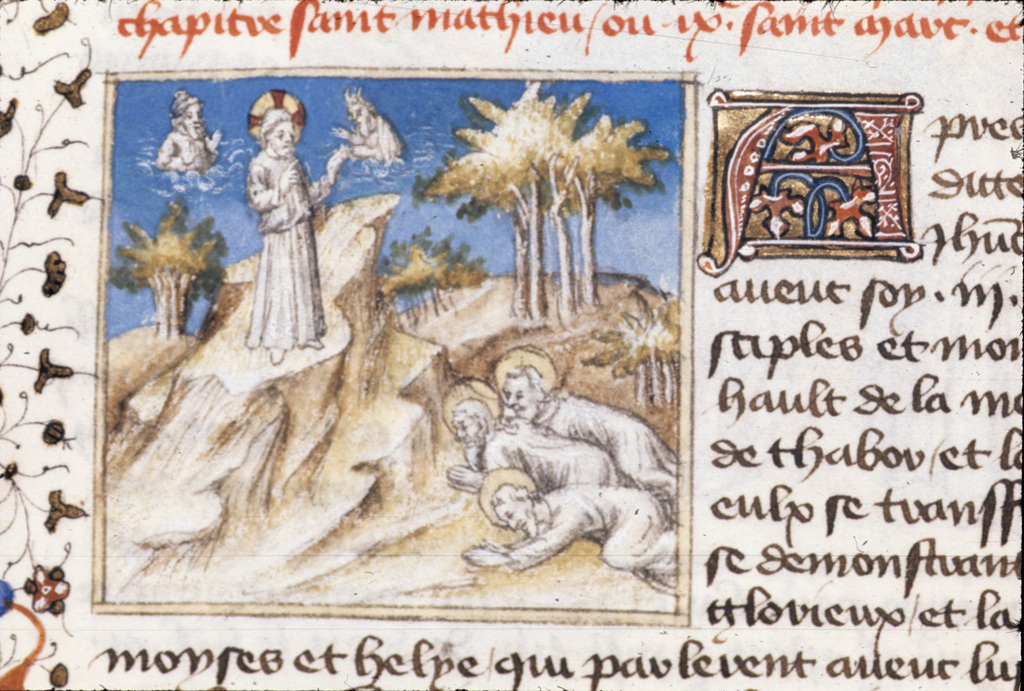 chapitre saint mathieu / ou .ix. saint marc. et
Apres
ditte
Jhūc
auenc soy .iii.
sciples et mon
hault de la mo
de thabor / et la
eulx se transff
se demonstrant
glorieux / et la
moyses et helye / qui parlerent auenc luy